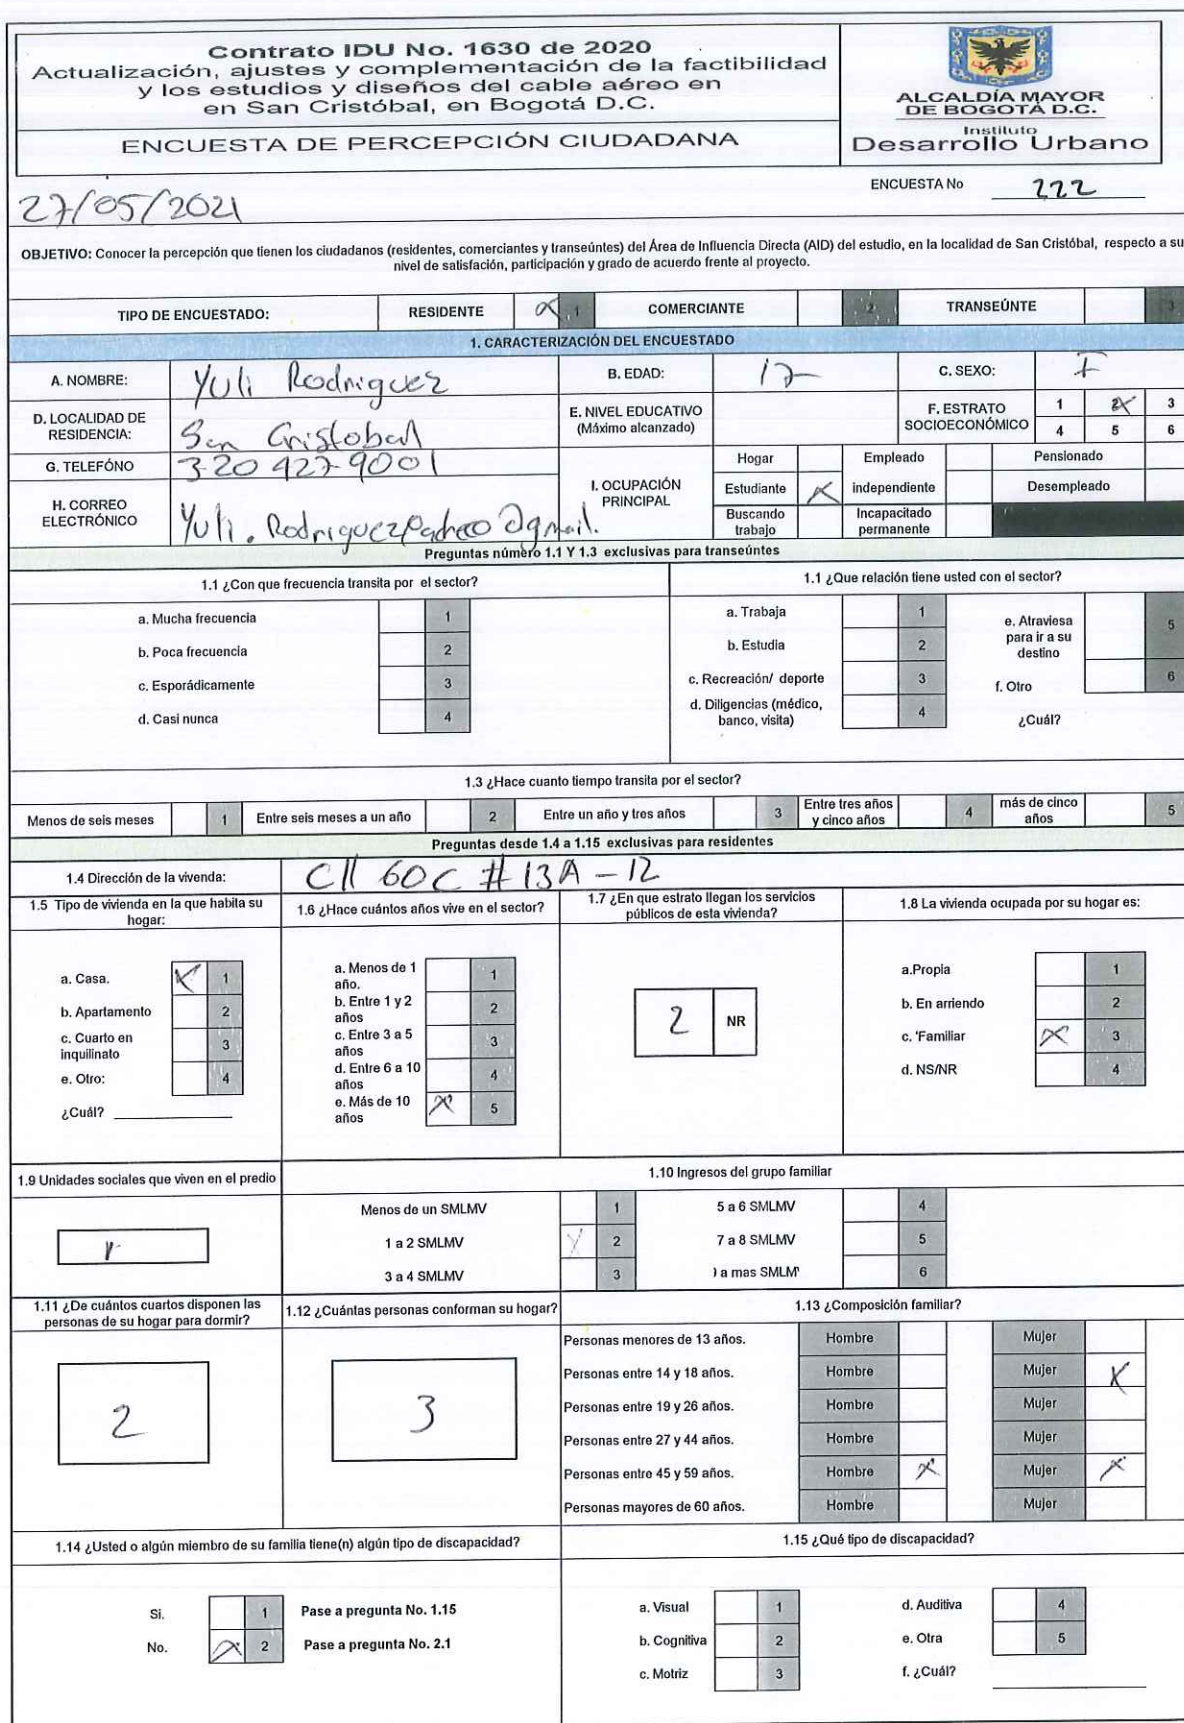 Contrato IDU No. 1630 de 2020
Actualización, ajustes y complementación de la factibilidad
y los estudios y diseños del cable aéreo en
en San Cristóbal, en Bogotá D.C.
ENCUESTA DE PERCEPCIÓN CIUDADANA
ALCALDÍA MAYOR
DE BOGOTÁ D.C.
Instituto
Desarrollo Urbano
ENCUESTA No 222
27/05/2021
OBJETIVO: Conocer la percepción que tienen los ciudadanos (residentes, comerciantes y transeúntes) del Área de Influencia Directa (AID) del estudio, en la localidad de San Cristóbal, respecto a su
nivel de satisfacción, participación y grado de acuerdo frente al proyecto.
TIPO DE ENCUESTADO: RESIDENTE X 1 COMERCIANTE 2 TRANSEÚNTE 3
1. CARACTERIZACIÓN DEL ENCUESTADO
A. NOMBRE: Yuli Rodriguez B. EDAD: 17 C. SEXO: F
D. LOCALIDAD DE
RESIDENCIA: San Cristobal
E. NIVEL EDUCATIVO
(Máximo alcanzado)
F. ESTRATO
SOCIOECONÓMICO
1 2 X 3
4 5 6
G. TELEFÓNO 320 427 9001
H. CORREO
ELECTRÓNICO Yuli.Rodriguezpacheco@gmail.
I. OCUPACIÓN
PRINCIPAL
Hogar Empleado Pensionado
Estudiante X independiente Desempleado
Buscando
trabajo
Incapacitado
permanente
Preguntas número 1.1 Y 1.3 exclusivas para transeúntes
1.1 ¿Con que frecuencia transita por el sector?
a. Mucha frecuencia 1
b. Poca frecuencia 2
c. Esporádicamente 3
d. Casi nunca 4
1.1 ¿Que relación tiene usted con el sector?
a. Trabaja 1
b. Estudia 2
c. Recreación/ deporte 3
d. Diligencias (médico,
banco, visita) 4
e. Atraviesa
para ir a su
destino 5
f. Otro 6
¿Cuál?
1.3 ¿Hace cuanto tiempo transita por el sector?
Menos de seis meses 1 Entre seis meses a un año 2 Entre un año y tres años 3 Entre tres años
y cinco años 4 más de cinco
años 5
Preguntas desde 1.4 a 1.15 exclusivas para residentes
1.4 Dirección de la vivenda: Cll 60C # 13A - 12
1.5 Tipo de vivienda en la que habita su
hogar:
a. Casa. X 1
b. Apartamento 2
c. Cuarto en
inquilinato 3
e. Otro: 4
¿Cuál?
1.6 ¿Hace cuántos años vive en el sector?
a. Menos de 1
año. 1
b. Entre 1 y 2
años 2
c. Entre 3 a 5
años 3
d. Entre 6 a 10
años 4
e. Más de 10
años X 5
1.7 ¿En que estrato llegan los servicios
públicos de esta vivienda?
2 NR
1.8 La vivienda ocupada por su hogar es:
a.Propia 1
b. En arriendo 2
c. 'Familiar X 3
d. NS/NR 4
1.9 Unidades sociales que viven en el predio
1.10 Ingresos del grupo familiar
Menos de un SMLMV 1 5 a 6 SMLMV 4
1 a 2 SMLMV X 2 7 a 8 SMLMV 5
3 a 4 SMLMV 3 a mas SMLM 6
1.11 ¿De cuántos cuartos disponen las
personas de su hogar para dormir?
2
1.12 ¿Cuántas personas conforman su hogar?
3
1.13 ¿Composición familiar?
Personas menores de 13 años. Hombre Mujer
Personas entre 14 y 18 años. Hombre Mujer X
Personas entre 19 y 26 años. Hombre Mujer
Personas entre 27 y 44 años. Hombre Mujer
Personas entre 45 y 59 años. Hombre X Mujer X
Personas mayores de 60 años. Hombre Mujer
1.14 ¿Usted o algún miembro de su familia tiene(n) algún tipo de discapacidad?
Si. 1 Pase a pregunta No. 1.15
No. X 2 Pase a pregunta No. 2.1
1.15 ¿Qué tipo de discapacidad?
a. Visual 1 d. Auditiva 4
b. Cognitiva 2 e. Otra 5
c. Motriz 3 f. ¿Cuál?